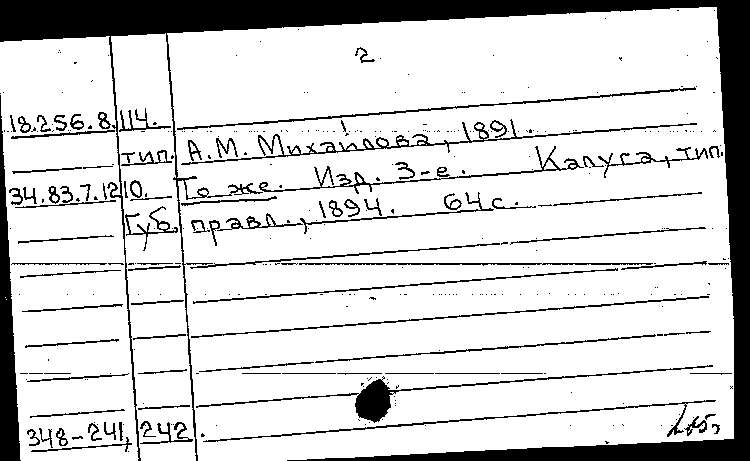 2
18.256.8.114.
тип. А.М. Михайлова, 1891.
34.83.7.1210. То же. Изд. 3-е. Калуга, тип.
Губ. правл., 1894. 64 с.
348-241, 242.